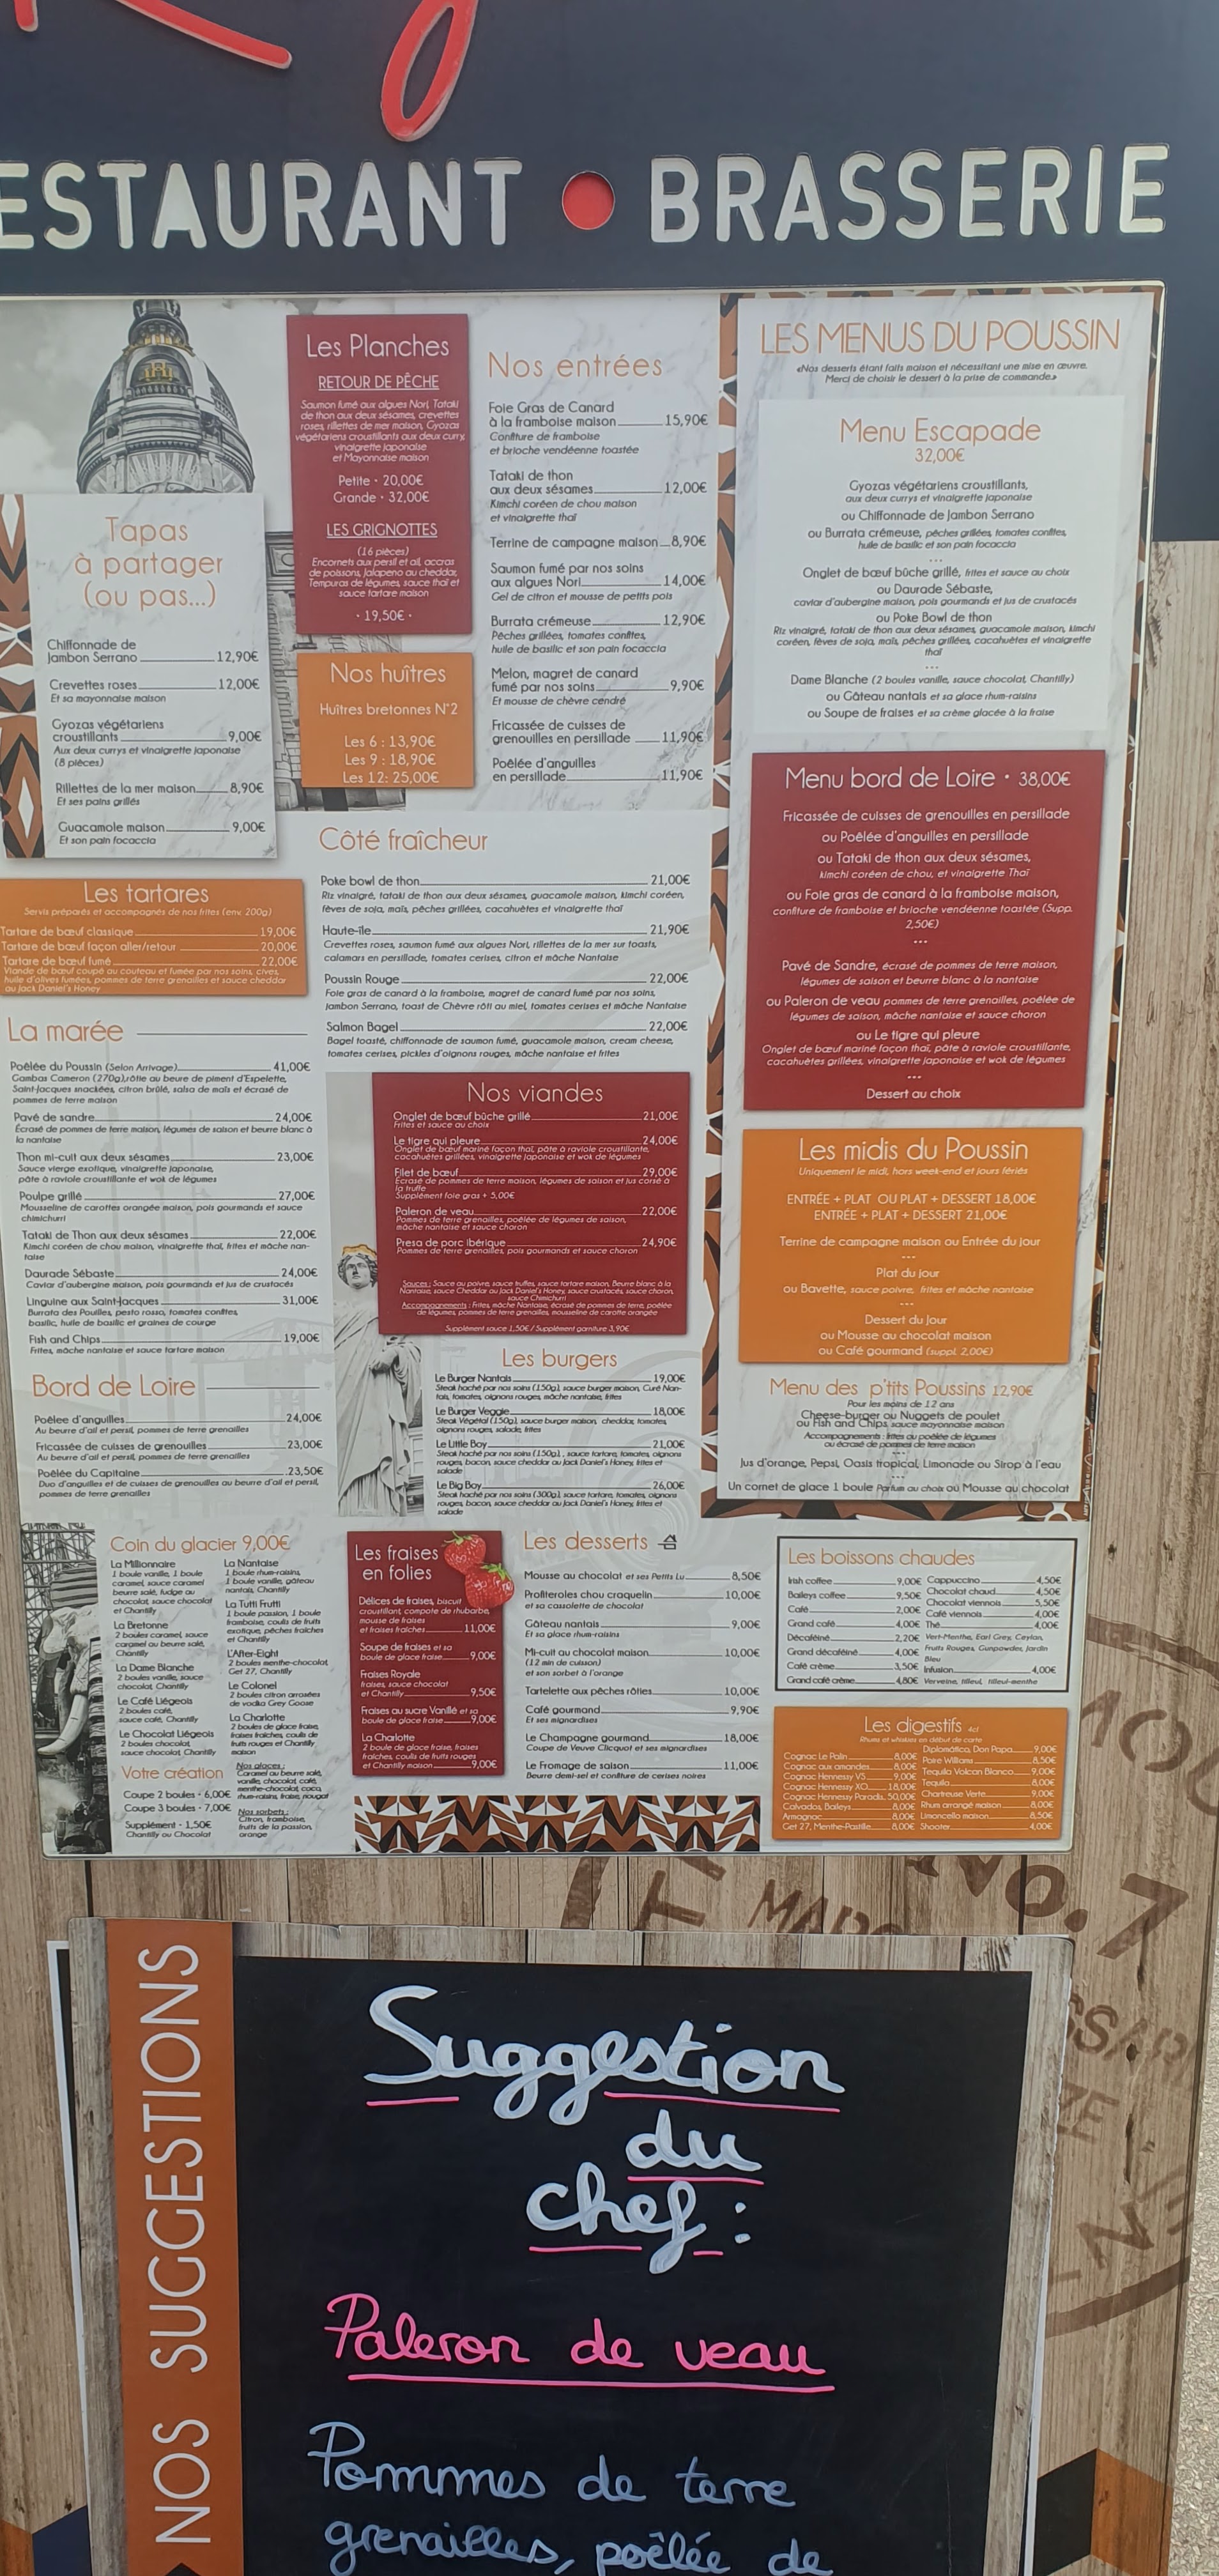 ESTAURANT • BRASSERIE
Tapas
à partager
(ou pas...)
Chiffonnade de
Jambon Serrano 12,90€
Crevettes roses 12,00€
Et sa mayonnaise maison
Gyozas végétariens
croustillants 9,00€
Aux deux currys et vinaigrette japonaise
(8 pièces)
Rillettes de la mer maison 8,90€
Et ses pains grillés
Guacamole maison 9,00€
Et son pain focaccia
Les Planches
RETOUR DE PÊCHE
Saumon fumé aux algues Nori, Tataki
de thon aux deux sésames, crevettes
roses, rillettes de mer maison, Gyozas
végétariens croustillants aux deux curry,
vinaigrette japonaise
et Mayonnaise maison
Petite • 20,00€
Grande • 32,00€
LES GRIGNOTTES
(16 pièces)
Encornets aux persil et ail, accras
de poissons, Jalapeno au cheddar,
Tempuras de légumes, sauce thaï et
sauce tartare maison
• 19,50€ •
Nos huîtres
Huîtres bretonnes N°2
Les 6 : 13,90€
Les 9 : 18,90€
Les 12: 25,00€
Nos entrées
Foie Gras de Canard
à la framboise maison 15,90€
Confiture de framboise
et brioche vendéenne toastée
Tataki de thon
aux deux sésames 12,00€
Kimchi coréen de chou maison
et vinaigrette thaï
Terrine de campagne maison 8,90€
Saumon fumé par nos soins
aux algues Nori 14,00€
Gel de citron et mousse de petits pois
Burrata crémeuse 12,90€
Pêches grillées, tomates confites,
huile de basilic et son pain focaccia
Melon, magret de canard
fumé par nos soins 9,90€
Et mousse de chèvre cendré
Fricassée de cuisses de
grenouilles en persillade 11,90€
Poêlée d'anguilles
en persillade 11,90€
Les tartares
Servis préparés et accompagnés de nos frites (env. 200g)
Tartare de bœuf classique 19,00€
Tartare de bœuf façon aller/retour 20,00€
Tartare de bœuf fumé 22,00€
Viande de bœuf coupé au couteau et fumée par nos soins, cives,
huile d'olives fumées, pommes de terre grenailles et sauce cheddar
au Jack Daniel's Honey
Côté fraîcheur
Poke bowl de thon 21,00€
Riz vinaigré, tataki de thon aux deux sésames, guacamole maison, kimchi coréen,
fèves de soja, maïs, pêches grillées, cacahuètes et vinaigrette thaï
Haute-île 21,90€
Crevettes roses, saumon fumé aux algues Nori, rillettes de la mer sur toasts,
calamars en persillade, tomates cerises, citron et mâche Nantaise
Poussin Rouge 22,00€
Foie gras de canard à la framboise, magret de canard fumé par nos soins,
Jambon Serrano, toast de Chèvre rôti au miel, tomates cerises et mâche Nantaise
Salmon Bagel 22,00€
Bagel toasté, chiffonnade de saumon fumé, guacamole maison, cream cheese,
tomates cerises, pickles d'oignons rouges, mâche nantaise et frites
La marée
Poêlée du Poussin (Selon Arrivage) 41,00€
Gambas Cameron (270g),rôtie au beure de piment d'Espelette,
Saint-Jacques snackées, citron brûlé, salsa de maïs et écrasé de
pommes de terre maison
Pavé de sandre 24,00€
Écrasé de pommes de terre maison, légumes de saison et beurre blanc à
la nantaise
Thon mi-cuit aux deux sésames 23,00€
Sauce vierge exotique, vinaigrette japonaise,
pâte à raviole croustillante et wok de légumes
Poulpe grillé 27,00€
Mousseline de carottes orangée maison, pois gourmands et sauce
chimichurri
Tataki de Thon aux deux sésames 22,00€
Kimchi coréen de chou maison, vinaigrette thaï, frites et mâche nan-
taise
Daurade Sébaste 24,00€
Caviar d'aubergine maison, pois gourmands et jus de crustacés
Linguine aux Saint-Jacques 31,00€
Burrata des Pouilles, pesto rosso, tomates confites,
basilic, huile de basilic et graines de courge
Fish and Chips 19,00€
Frites, mâche nantaise et sauce tartare maison
Bord de Loire
Poêlee d'anguilles 24,00€
Au beurre d'ail et persil, pommes de terre grenailles
Fricassée de cuisses de grenouilles 23,00€
Au beurre d'ail et persil, pommes de terre grenailles
Poêlée du Capitaine 23,50€
Duo d'anguilles et de cuisses de grenouilles au beurre d'ail et persil,
pommes de terre grenailles
Nos viandes
Onglet de bœuf bûche grillé 21,00€
Frites et sauce au choix
Le tigre qui pleure 24,00€
Onglet de bœuf mariné façon thaï, pâte à raviole croustillante,
cacahuètes grillées, vinaigrette japonaise et wok de légumes
Filet de bœuf 29,00€
Écrasé de pommes de terre maison, légumes de saison et jus corsé à
la truffe
Supplément foie gras + 5,00€
Paleron de veau 22,00€
Pommes de terre grenailles, poêlée de légumes de saison,
mâche nantaise et sauce choron
Presa de porc ibérique 24,90€
Pommes de terre grenailles, pois gourmands et sauce choron
Sauces : Sauce au poivre, sauce truffes, sauce tartare maison, Beurre blanc à la
Nantaise, sauce Cheddar au Jack Daniel's Honey, sauce crustacés, sauce choron,
sauce Chimichurri
Accompagnements : Frites, mâche Nantaise, écrasé de pommes de terre, poêlée
de légumes, pommes de terre grenailles, mousseline de carotte orangée
Supplément sauce 1,50€ / Supplément garniture 3,90€
Les burgers
Le Burger Nantais 19,00€
Steak haché par nos soins (150g), sauce burger maison, Curé Nan-
tais, tomates, oignons rouges, mâche nantaise, frites
Le Burger Veggie 18,00€
Steak Végétal (150g), sauce burger maison, cheddar, tomates,
oignons rouges, salade, frites
Le Little Boy 21,00€
Steak haché par nos soins (150g), sauce tartare, tomates, oignons
rouges, bacon, sauce cheddar au Jack Daniel's Honey, frites et
salade
Le Big Boy 26,00€
Steak haché par nos soins (300g), sauce tartare, tomates, oignons
rouges, bacon, sauce cheddar au Jack Daniel's Honey, frites et
salade
LES MENUS DU POUSSIN
«Nos desserts étant faits maison et nécessitant une mise en œuvre.
Merci de choisir le dessert à la prise de commande.»
Menu Escapade
32,00€
Gyozas végétariens croustillants,
aux deux currys et vinaigrette japonaise
ou Chiffonnade de Jambon Serrano
ou Burrata crémeuse, pêches grillées, tomates confites,
huile de basilic et son pain focaccia
...
Onglet de bœuf bûche grillé, frites et sauce au choix
ou Daurade Sébaste,
caviar d'aubergine maison, pois gourmands et jus de crustacés
ou Poke Bowl de thon
Riz vinaigré, tataki de thon aux deux sésames, guacamole maison, kimchi
coréen, fèves de soja, maïs, pêches grillées, cacahuètes et vinaigrette
thaï
...
Dame Blanche (2 boules vanille, sauce chocolat, Chantilly)
ou Gâteau nantais et sa glace rhum-raisins
ou Soupe de fraises et sa crème glacée à la fraise
Menu bord de Loire • 38,00€
Fricassée de cuisses de grenouilles en persillade
ou Poêlée d'anguilles en persillade
ou Tataki de thon aux deux sésames,
kimchi coréen de chou, et vinaigrette Thaï
ou Foie gras de canard à la framboise maison,
confiture de framboise et brioche vendéenne toastée (Supp.
2,50€)
...
Pavé de Sandre, écrasé de pommes de terre maison,
légumes de saison et beurre blanc à la nantaise
ou Paleron de veau pommes de terre grenailles, poêlée de
légumes de saison, mâche nantaise et sauce choron
ou Le tigre qui pleure
Onglet de bœuf mariné façon thaï, pâte à raviole croustillante,
cacahuètes grillées, vinaigrette japonaise et wok de légumes
...
Dessert au choix
Les midis du Poussin
Uniquement le midi, hors week-end et jours fériés
ENTRÉE + PLAT OU PLAT + DESSERT 18,00€
ENTRÉE + PLAT + DESSERT 21,00€
Terrine de campagne maison ou Entrée du jour
...
Plat du jour
ou Bavette, sauce poivre, frites et mâche nantaise
...
Dessert du jour
ou Mousse au chocolat maison
ou Café gourmand (suppl. 2,00€)
Menu des p'tits Poussins 12,90€
Pour les moins de 12 ans
Cheese-burger ou Nuggets de poulet
ou Fish and Chips sauce mayonnaise maison
Accompagnements : frites ou poêlée de légumes
ou écrasé de pommes de terre maison
...
Jus d'orange, Pepsi, Oasis tropical, Limonade ou Sirop à l'eau
...
Un cornet de glace 1 boule Parfum au choix ou Mousse au chocolat
Coin du glacier 9,00€
La Millionnaire
1 boule vanille, 1 boule
caramel, sauce caramel
beurre salé, fudge au
chocolat, sauce chocolat
et Chantilly
La Bretonne
2 boules caramel, sauce
caramel au beurre salé,
Chantilly
La Dame Blanche
2 boules vanille, sauce
chocolat, Chantilly
Le Café Liégeois
2 boules café,
sauce café, Chantilly
Le Chocolat Liégeois
2 boules chocolat,
sauce chocolat, Chantilly
Votre création
Coupe 2 boules • 6,00€
Coupe 3 boules • 7,00€
Supplément • 1,50€
Chantilly ou Chocolat
La Nantaise
1 boule rhum-raisins,
1 boule vanille, gâteau
nantais, Chantilly
La Tutti Frutti
1 boule passion, 1 boule
framboise, coulis de fruits
exotique, pêches fraîches
et Chantilly
L'After-Eight
2 boules menthe-chocolat,
Get 27, Chantilly
Le Colonel
2 boules citron arrosées
de vodka Grey Goose
La Charlotte
2 boules de glace fraise,
fraises fraîches, coulis de
fruits rouges et Chantilly
maison
Nos glaces :
Caramel au beurre salé,
vanille, chocolat, café,
menthe-chocolat, coco,
rhum-raisins, fraise, nougat
Nos sorbets :
Citron, framboise,
fruits de la passion,
orange
Les fraises
en folies
Délices de fraises, biscuit
croustillant, compote de rhubarbe,
mousse de fraises
et fraises fraîches 11,00€
Soupe de fraises et sa
boule de glace fraise 9,00€
Fraises Royale
fraises, sauce chocolat
et Chantilly 9,50€
Fraises au sucre Vanillé et sa
boule de glace fraise 9,00€
La Charlotte
2 boule de glace fraise, fraises
fraîches, coulis de fruits rouges
et Chantilly maison 9,00€
Les desserts
Mousse au chocolat et ses Petits Lu 8,50€
Profiteroles chou craquelin 10,00€
et sa cassolette de chocolat
Gâteau nantais 9,00€
Et sa glace rhum-raisins
Mi-cuit au chocolat maison 10,00€
(12 min de cuisson)
et son sorbet à l'orange
Tartelette aux pêches rôties 10,00€
Café gourmand 9,90€
Et ses mignardises
Le Champagne gourmand 18,00€
Coupe de Veuve Clicquot et ses mignardises
Le Fromage de saison 11,00€
Beurre demi-sel et confiture de cerises noires
Les boissons chaudes
Irish coffee 9,00€
Baileys coffee 9,50€
Café 2,00€
Grand café 4,00€
Décaféiné 2,20€
Grand décaféiné 4,00€
Café crème 3,50€
Grand café crème 4,80€
Cappuccino 4,50€
Chocolat chaud 4,50€
Chocolat viennois 5,50€
Café viennois 4,00€
Thé 4,00€
Vert-Menthe, Earl Grey, Ceylan,
Fruits Rouges, Gunpowder, Jardin
Bleu
Infusion 4,00€
Verveine, tilleul, tilleul-menthe
Les digestifs 4cl
Rhums et whiskies en début de carte
Cognac Le Palin 8,00€
Cognac aux amandes 8,00€
Cognac Hennessy VS 9,00€
Cognac Hennessy XO 18,00€
Cognac Hennessy Paradis 50,00€
Calvados, Baileys 8,00€
Armagnac 8,00€
Get 27, Menthe-Pastille 8,00€
Diplomático, Don Papa 9,00€
Poire Williams 8,50€
Tequila Volcan Blanco 9,00€
Tequila 8,00€
Chartreuse Verte 9,00€
Rhum arrangé maison 8,00€
Limoncello maison 8,50€
Shooter 4,00€
No.7
NOS SUGGESTIONS
Suggestion
du
chef :
Paleron de veau
Pommes de terre
grenailles, poêlée de